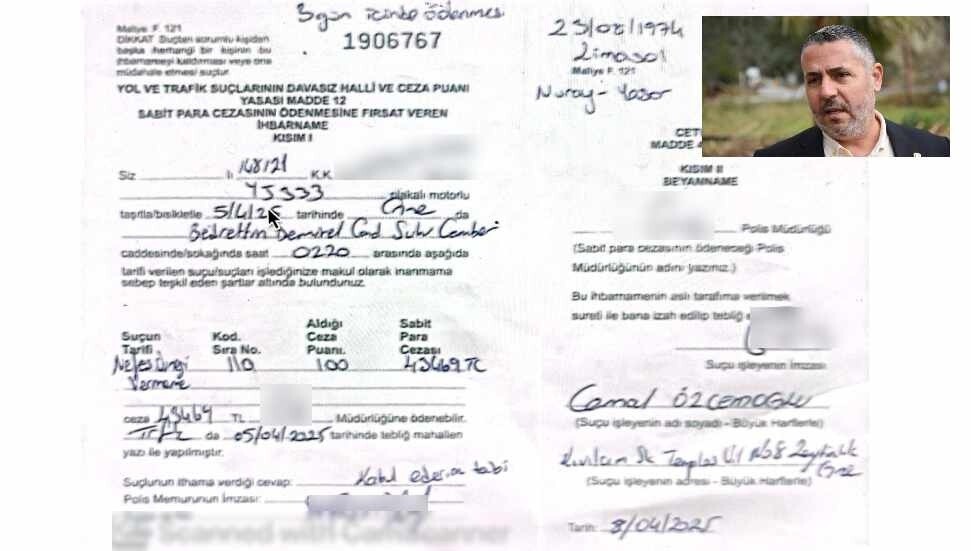 3 gün içinde ödenmesi
Maliye F. 121
DİKKAT Suçtan sorumlu kişiden
başka herhangi bir kişinin bu
ihbarnameyi kaldırması veya ona
müdahale etmesi suçtur.
1906767
YOL VE TRAFİK SUÇLARININ DAVASIZ HALLİ VE CEZA PUANI
YASASI MADDE 12
SABİT PARA CEZASININ ÖDENMESİNE FIRSAT VEREN
İHBARNAME
KISIM I
Siz K.K.
YJ333 plakalı motorlu
taşıtla/bisikletle 5/4/25 tarihinde Gne da
Bedrettin Demirel Cad Suhr Cemberi
caddesinde/sokağında saat 0220 arasında aşağıda
tarifi verilen suçu/suçları işlediğinize makul olarak inanmama
sebep teşkil eden şartlar altında bulundunuz.
Suçun Tarifi Kod. Sıra No. Aldığı Ceza Puanı. Sabit Para Cezası
Nefes Örneği 110 100 43469 TL
Vermeme
ceza 43469 TL Müdürlüğüne ödenebilir.
da 05/04/2025 tarihinde tebliğ mahallen
yazı ile yapılmıştır.
Suçlunun ithama verdiği cevap: Kabul ederim tabi
Polis Memurunun İmzası:
Scanned with CamScanner
23/08/1974
Limasol
Maliye F. 121
Nuray - Yaşar
MADDE
KISIM II
BEYANNAME
Polis Müdürlüğü
(Sabit para cezasının ödeneceği Polis
Müdürlüğünün adını yazınız.)
Bu ihbarnamenin aslı tarafıma verilmek
sureti ile bana izah edilip tebliğ
Suçu işleyenin İmzası
Cemal ÖZCEMOĞLU
(Suçu işleyenin adı soyadı - Büyük Harflerle)
Kıvılcım Sk No8 Zeytinlik
Gne
(Suçu işleyenin adresi - Büyük Harflerle)
Tarih: 8/04/2025